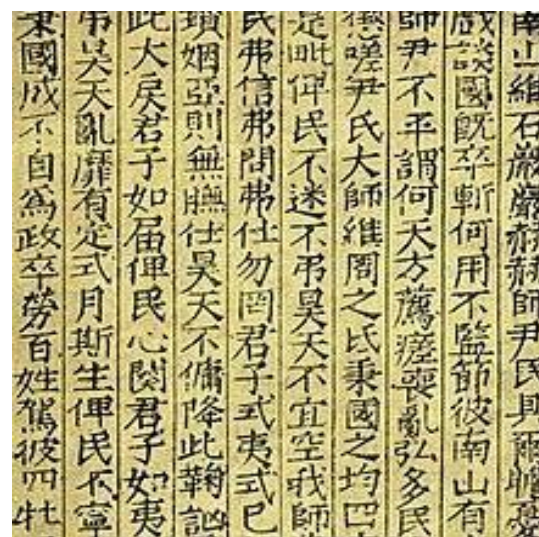 南山維石巖巖赫赫師尹民具爾瞻憂
戲談國既卒斬何用不監節彼南山有
師尹不平謂何天方薦瘥喪亂弘多民
懲嗟尹氏大師維周之氐秉國之均四
是毗俾民不迷不弔昊天不宜空我師
民弗信弗問弗仕勿罔君子式夷式已
瑣姻亞則無膴仕昊天不傭降此鞫訩
此大戾君子如届俾民心闋君子如夷
弔昊天亂靡有定式月斯生俾民不寧
秉國成不自爲政卒勞百姓駕彼四牡